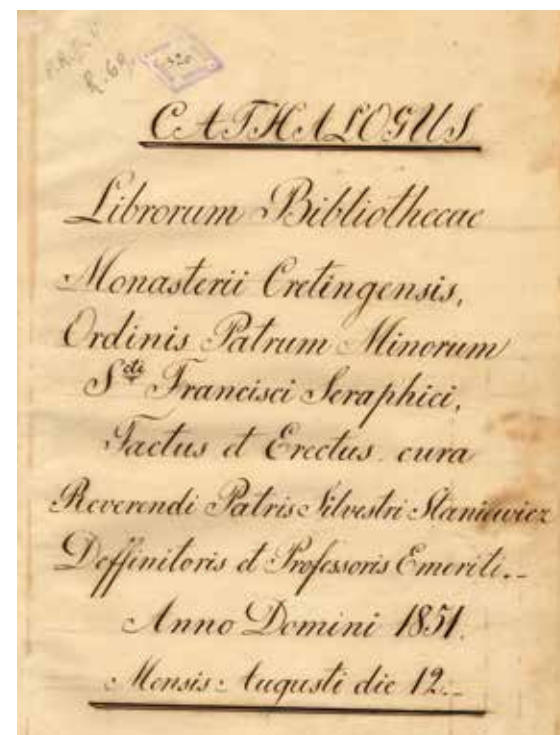 R. 69
320
CATHALOGUS
Librorum Bibliothecae
Monasterii Cretingensis,
Ordinis Patrum Minorum
S^cti Francisci Seraphici,
Factus et Erectus cura
Reverendi Patris Silvestri Staniewicz
Deffinitoris et Professoris Emeriti._
Anno Domini 1851.
Mensis Augusti die 12._